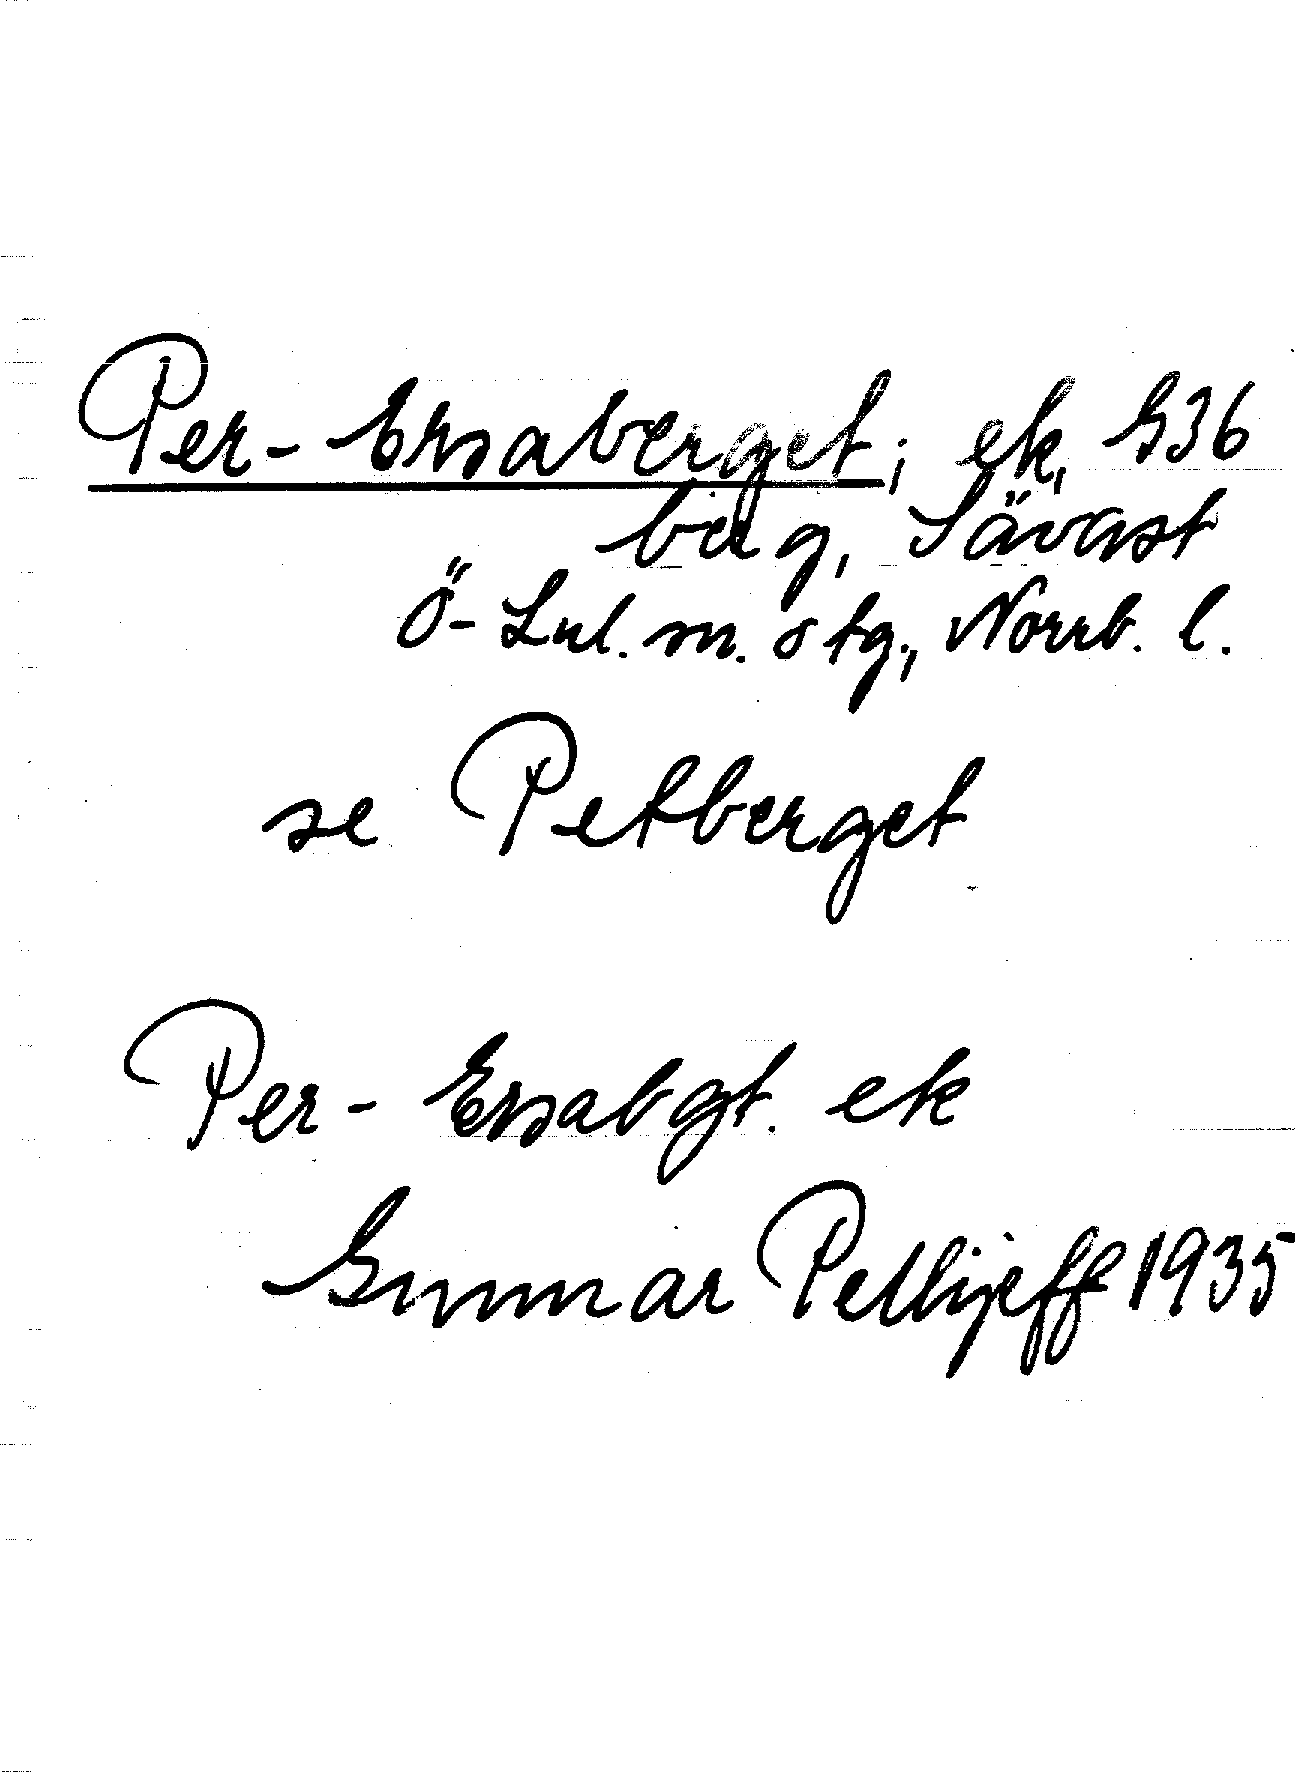 Per-Ersaberget; ek, G36
berg, Sävast
Ö-Lul. sn. o tg., Norrb. l.
se Petberget
Per-Ersabgt. ek
Gunnar Pellijeff 1935